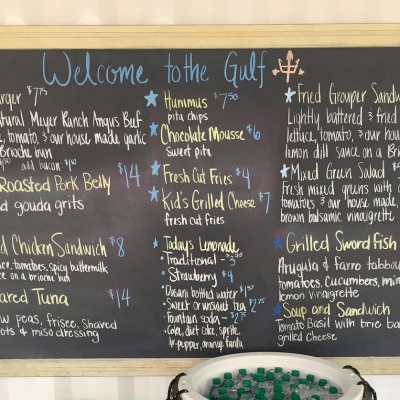 Welcome to the Gulf
urger $7.75
atural Meyer Ranch Angus Beef
e, tomato, & our house made garlic
Brioche bun
add bacon
Roasted Pork Belly $14
d gouda grits
d Chicken Sandwich $8
uce, tomatoes, spicy buttermilk
ce on a brioche bun
ared Tuna $14
w peas, frisee, shaved
ots & miso dressing
Hummus $7.50
pita chips
Chocolate Mousse $6
Sweet pita
Fresh Cut Fries $4
Kid's Grilled Cheese $7
fresh cut fries
Today's Lemonade
Traditional
Strawberry $4
Dasani bottled water $1.50
Sweet or unsweet tea $2.75
fountain soda - $2.75
Coke, diet coke, sprite,
dr. pepper, orange fanta
Fried Grouper Sandw
Lightly battered & fried
lettuce, tomato, & our hous
lemon dill sauce on a Bri
Mixed Green Salad
Fresh mixed greens with c
tomatoes & our house made,
brown balsamic vinaigrette
Grilled Swordfish
Arugula & farro tabbou
Tomatoes, Cucumbers, min
lemon vinaigrette
Soup and Sandwich
Tomato Basil with brie ba
grilled Cheese